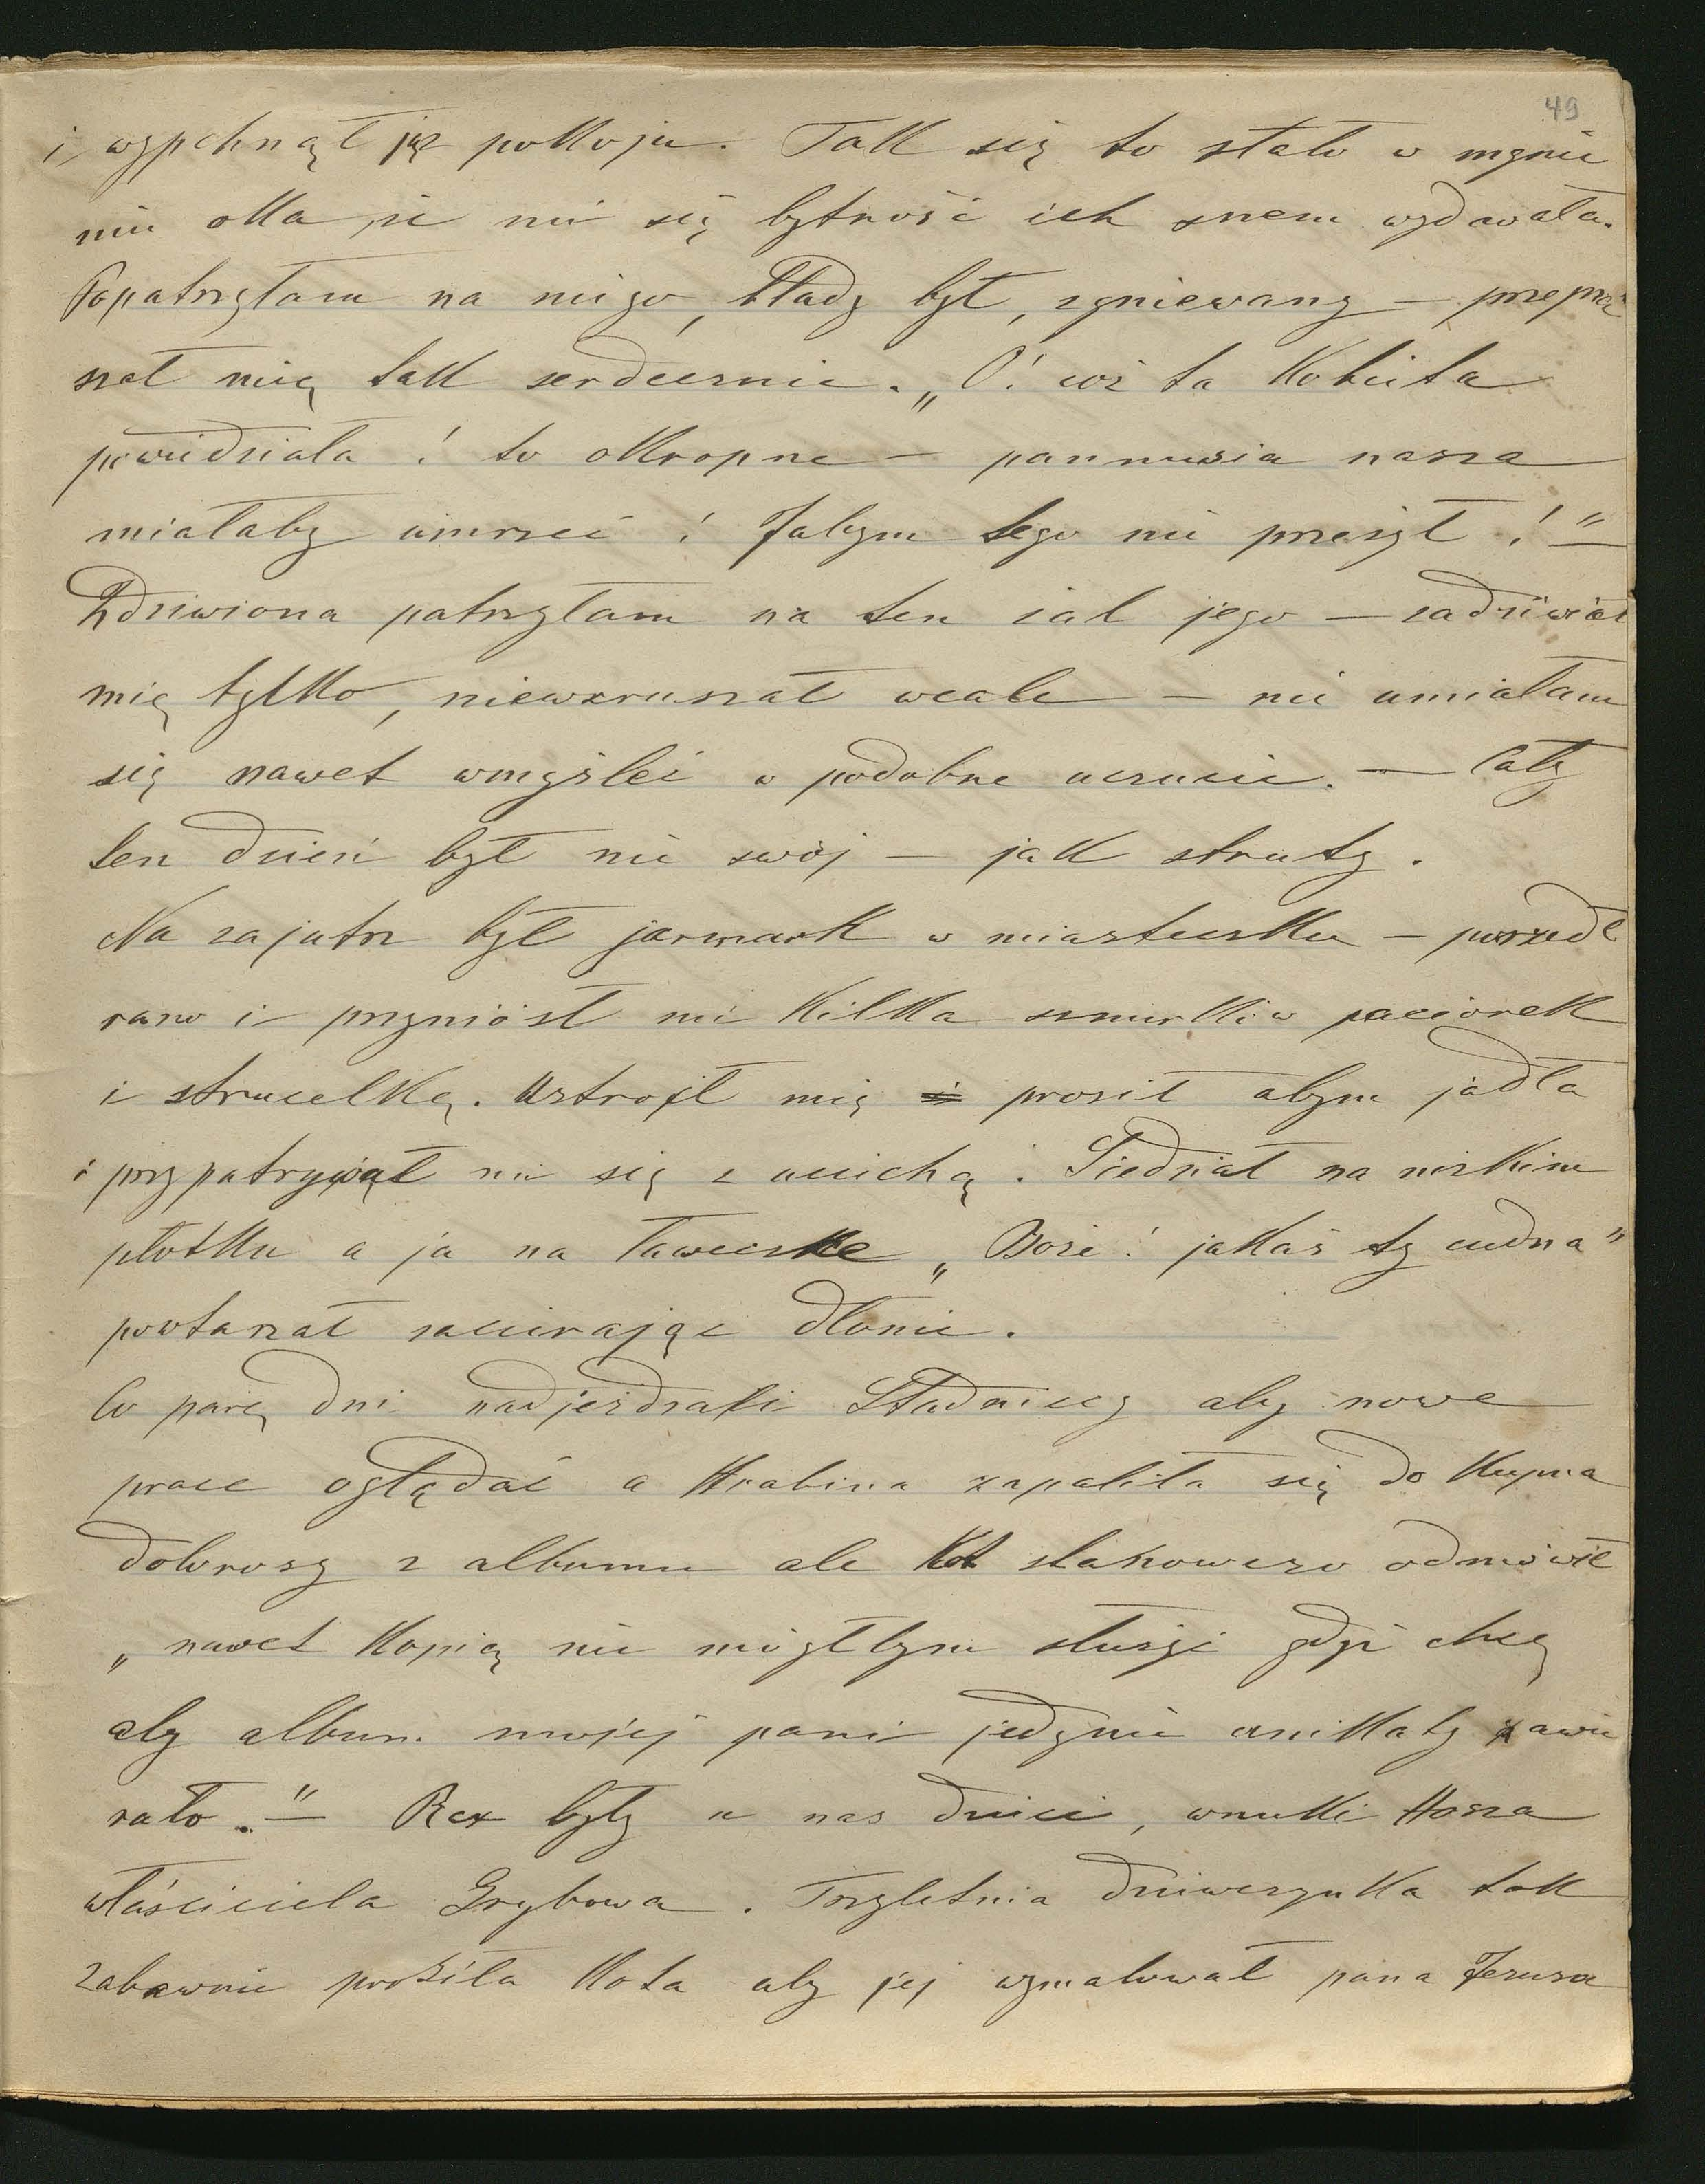 49
i wypchnął ją z pokoju. Tak się to stało w mgnie
niu oka, że mi się bytność ich snem wydawała.
Popatrzyłam na niego, blady był, zgniewany — przepra
szał mię tak serdecznie. „O! coż ta kobieta
powiedziała! to okropne — pannusia nasza
miałaby umrzeć! Jabym tego nie przeżył!"—
Zdziwiona patrzyłam na ten żal jego — zadziwiał
mię tylko, niewzruszał wcale — nie umiałam
się nawet wmyśleć w podobne uczucie. — Cały
ten dzień był nie swój — jak struty.
Na zajutrz był jarmark w miasteczku — poszedł
rano i przyniósł mi kilka sznurków paciorek
i strucelkę. Ustroił mię i prosił abym jadła
i przypatrywał mi się z uciechą. Siedział na nizkim
płotku a ja na ławeczke „Boże! jakaś ty cudna"
powtarzał zacierając dłonie.
Co parę dni nadjeżdżali Stadniccy aby nowe
prace oglądać a Hrabina zapaliła się do kupna
dobroszy z albumu ale Kot stanowczo odmówił
„nawet kopią nie mógłbym służyć gdyż chcę
aby album mojej pani jedynie unikaty zawie
rało."— Raz były u nas dzieci, wnuki Hosza
właściciela Grybowa. Trzyletnia dziweczynka tak
zabawnie prosiła Kota aby jej wymalował pana Jezusa